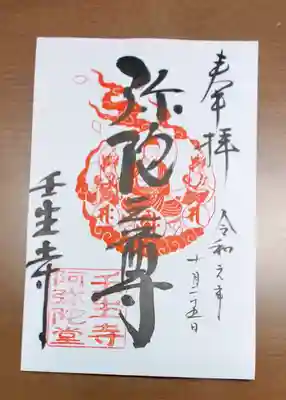 奉拝
令和元年
十月二五日
弥陀三尊
壬生寺
壬生寺
阿弥陀堂